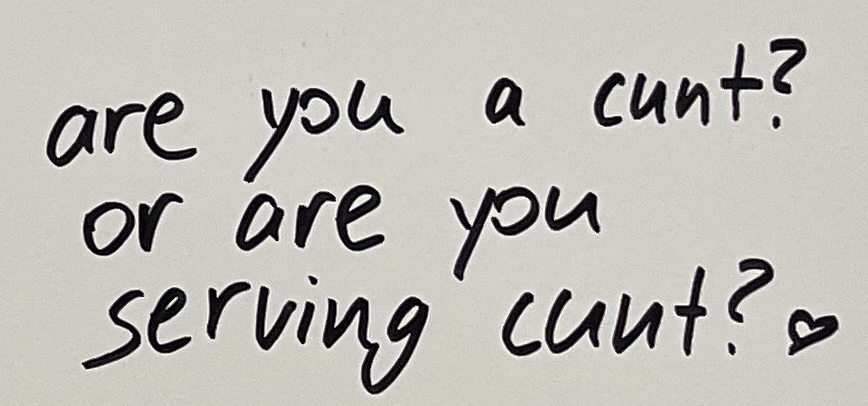 are you a cunt?
or are you
serving cunt? ♡